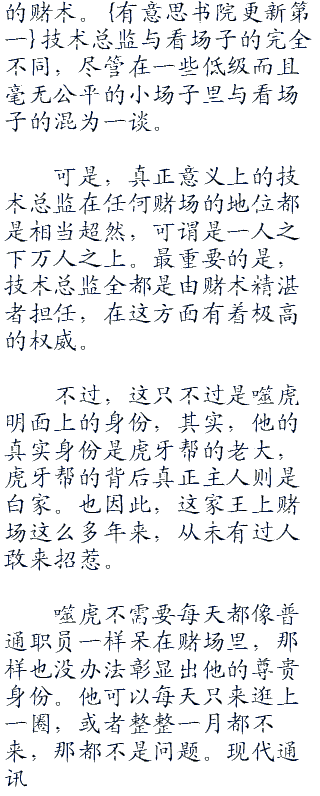 的赌术。{有意思书院更新第
一}技术总监与看场子的完全
不同，尽管在一些低级而且
毫无公平的小场子里与看场
子的混为一谈。
可是，真正意义上的技
术总监在任何赌场的地位都
是相当超然，可谓是一人之
下万人之上。最重要的是，
技术总监全都是由赌术精湛
者担任，在这方面有着极高
的权威。
不过，这只不过是噬虎
明面上的身份，其实，他的
真实身份是虎牙帮的老大，
虎牙帮的背后真正主人则是
白家。也因此，这家王上赌
场这么多年来，从未有过人
敢来招惹。
噬虎不需要每天都像普
通职员一样呆在赌场里，那
样也没办法彰显出他的尊贵
身份。他可以每天只来逛上
一圈，或者整整一月都不
来，那都不是问题。现代通
讯